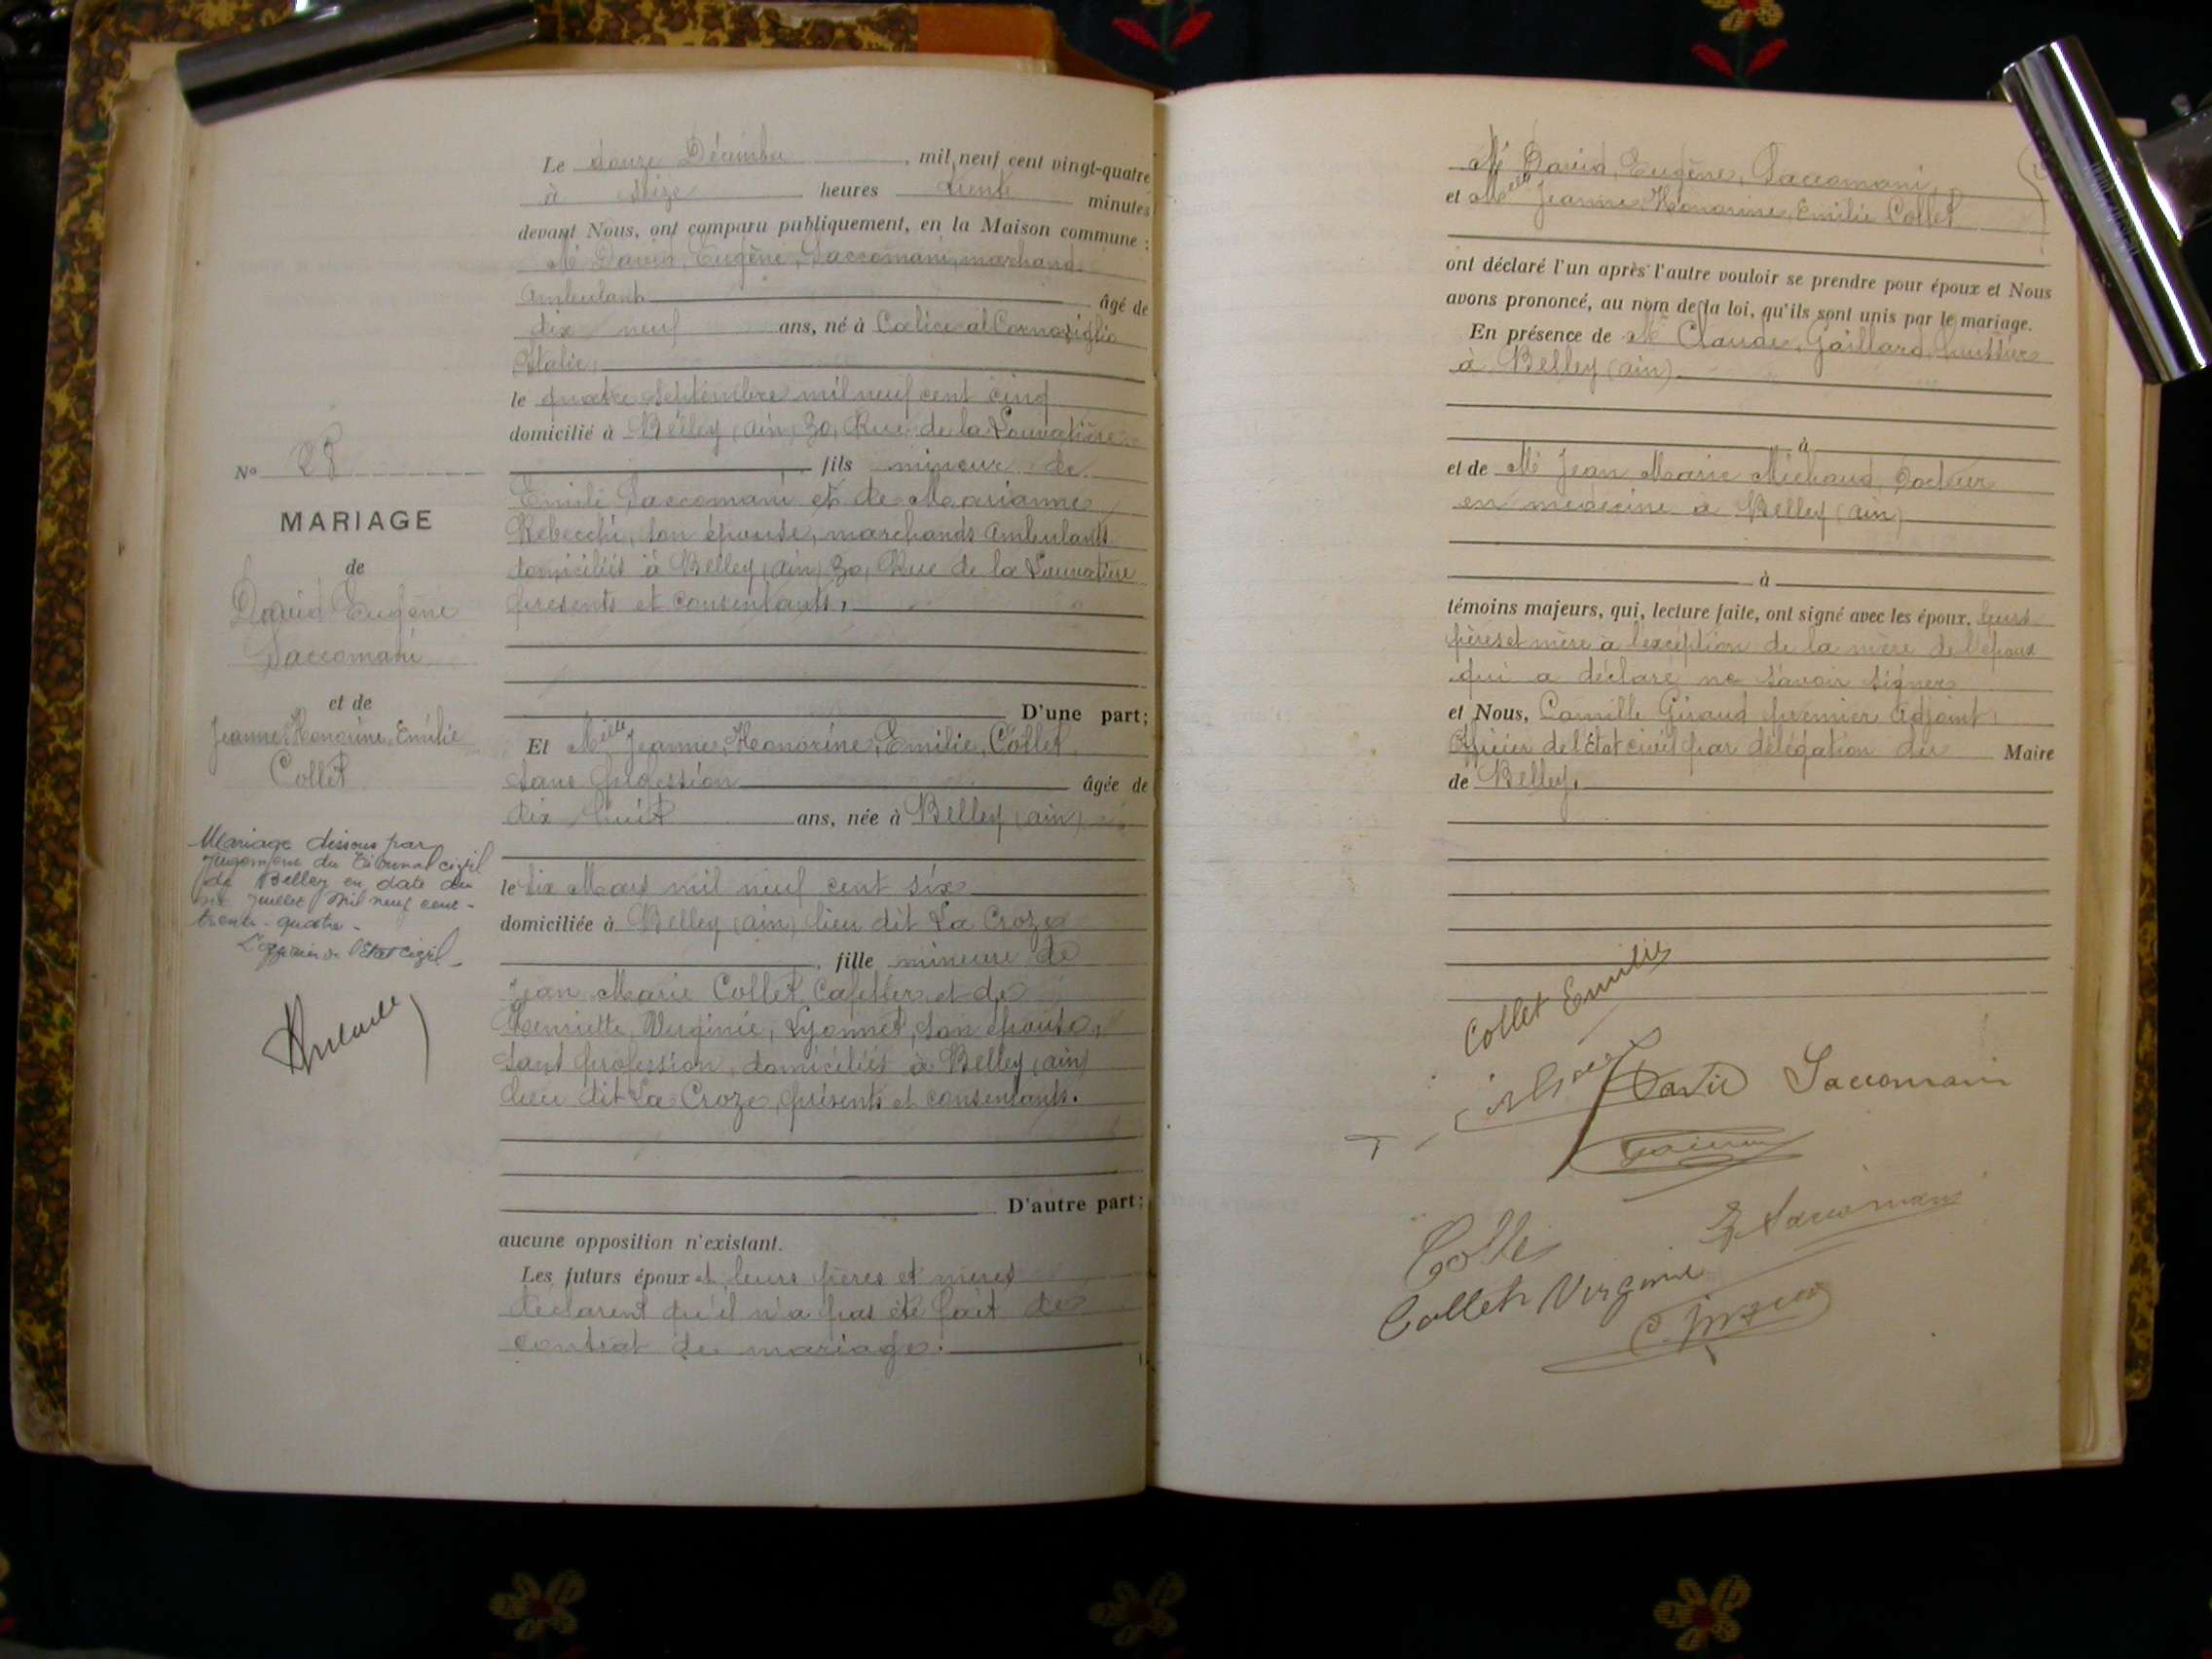 Le douze Décembre, mil neuf cent vingt-quatre
à seize heures trente minutes
devant Nous, ont comparu publiquement, en la Maison commune :
Mr David, Eugène, Saccomani, marchand
ambulant âgé de
dix neuf ans, né à
Italie,
le quatre Septembre mil neuf cent cinq
domicilié à Belley (ain) 30, Rue de la Louvatière
fils mineur de
Emile Saccomani et de Marianne
Rebecchi, son épouse, marchands ambulants
domiciliés à Belley (ain) 30, Rue de la Louvatière
présents et consentants,
D'une part;
Et Melle Jeanne, Honorine, Emilie, Collet
sans profession âgée de
dix huit ans, née à Belley (ain)
le dix Mars mil neuf cent six
domiciliée à Belley (ain) lieu dit La Croze
, fille mineure de
Jean Marie Collet, Cafetier et de
Henriette, Virginie, Lyonnet, son épouse,
sans profession, domiciliés à Belley (ain)
lieu dit La Croze, présents et consentants.
D'autre part;
aucune opposition n'existant.
Les futurs époux et leurs pères et mères
déclarent qu'il n'a pas été fait de
contrat de mariage.
No
MARIAGE
de
David Eugène
Saccomani
et de
Jeanne, Honorine, Emilie
Collet
Mariage dissous par
jugement du Tribunal civil
de Belley en date du
juillet mil neuf cent
trente-quatre -
L'officier de l'Etat civil -
Mr David, Eugène, Saccomani,
et Melle Jeanne, Honorine, Emilie Collet
ont déclaré l'un après l'autre vouloir se prendre pour époux et Nous
avons prononcé, au nom de la loi, qu'ils sont unis par le mariage.
En présence de Mr Claude, Gaillard,
à Belley (ain)
à
et de Mr Jean Marie Michaud, Docteur
en médecine à Belley (ain)
à
témoins majeurs, qui, lecture faite, ont signé avec les époux, leurs
pères et mère à l'exception de la mère de l'époux
qui a déclaré ne savoir signer
et Nous, Camille Giraud premier adjoint,
Officier de l'Etat civil par délégation du Maire
de Belley.
Collet Emilie
David Saccomani
E Saccomani
Collet Virginie